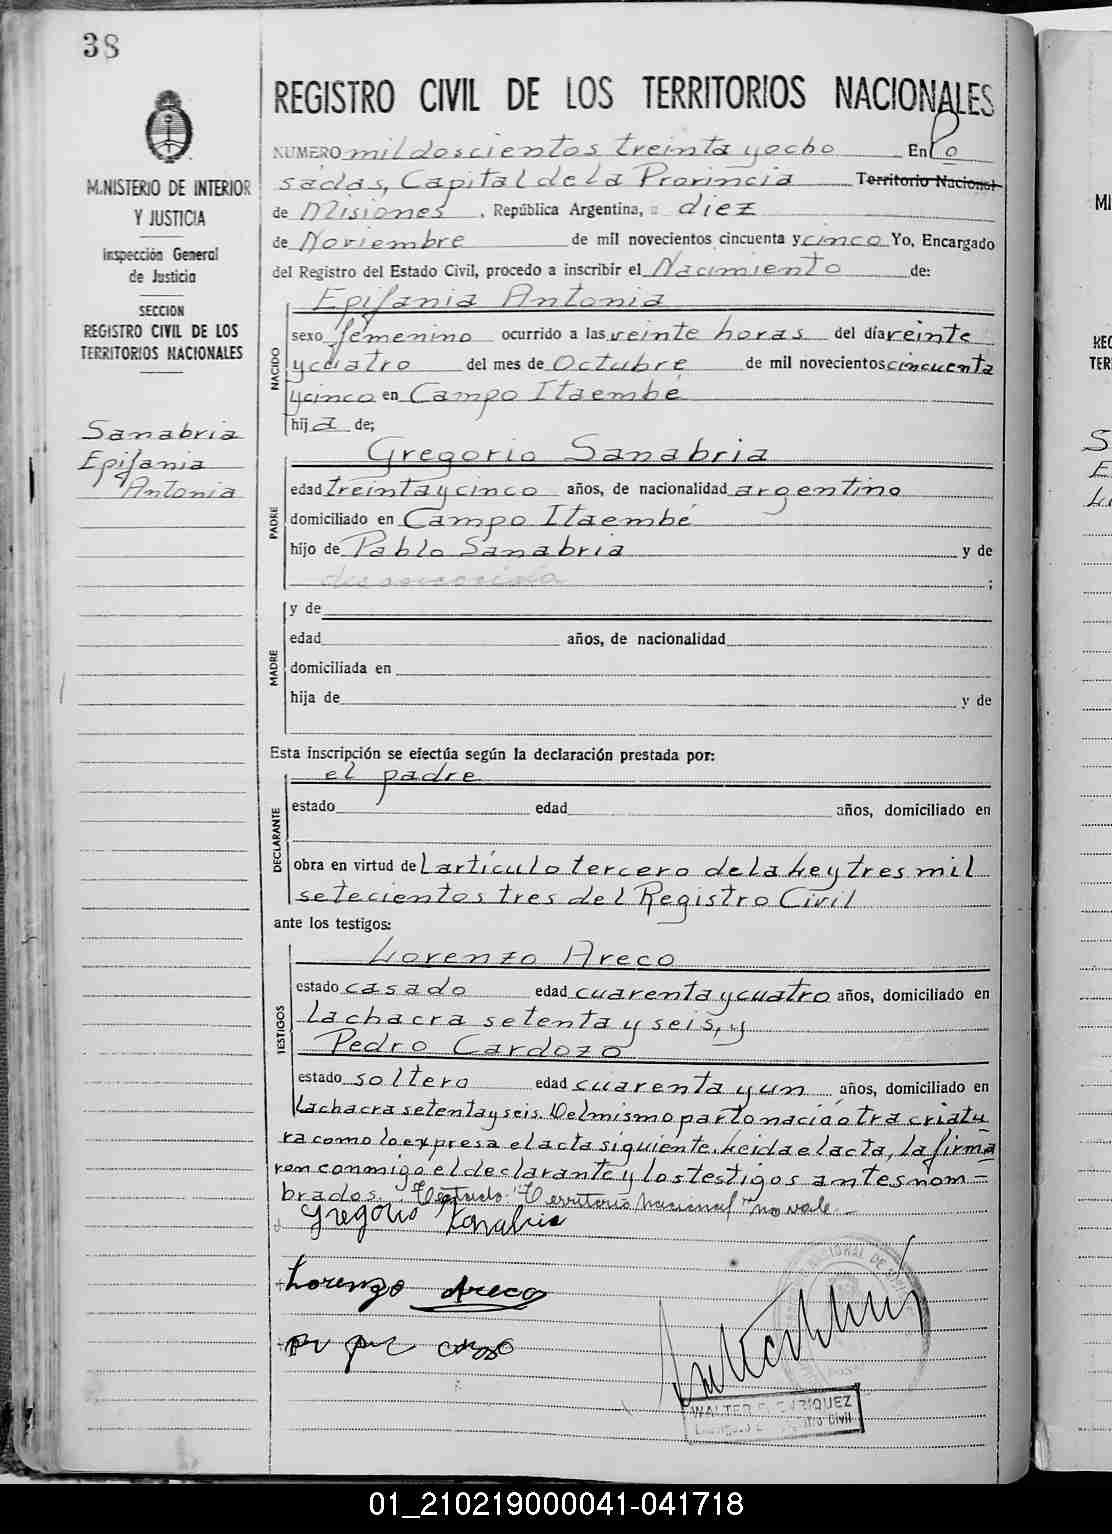 38
REGISTRO CIVIL DE LOS TERRITORIOS NACIONALES
MINISTERIO DE INTERIOR
Y JUSTICIA
Inspección General
de Justicia
SECCION
REGISTRO CIVIL DE LOS
TERRITORIOS NACIONALES
Sanabria
Epifania
Antonia
NUMERO mil doscientos treinta y ocho En Po
sadas, Capital de la Provincia Territorio Nacional
de Misiones, República Argentina, a diez
de Noviembre de mil novecientos cincuenta y cinco Yo, Encargado
del Registro del Estado Civil, procedo a inscribir el Nacimiento de:
NACIDO
Epifania Antonia
sexo femenino ocurrido a las veinte horas del día veinte
y cuatro del mes de Octubre de mil novecientos cincuenta
y cinco en Campo Itaembé
hija de;
PADRE
Gregorio Sanabria
edad treinta y cinco años, de nacionalidad argentino
domiciliado en Campo Itaembé
hijo de Pablo Sanabria y de
;
MADRE
y de
edad años, de nacionalidad
domiciliada en
hija de y de
Esta inscripción se efectúa según la declaración prestada por:
DECLARANTE
el padre
estado edad años, domiciliado en
obra en virtud del artículo tercero de la Ley tres mil
setecientos tres del Registro Civil
ante los testigos:
TESTIGOS
Lorenzo Areco
estado casado edad cuarenta y cuatro años, domiciliado en
La chacra setenta y seis, y
Pedro Cardozo
estado soltero edad cuarenta y un años, domiciliado en
La chacra setenta y seis. Del mismo parto nació otra criatu
ra como lo expresa el acta siguiente. Leida el acta, la firma
ron conmigo el declarante y los testigos antes nom-
brados. Testado: "Territorio Nacional" no vale.-
Gregorio Sanabria
Lorenzo Areco
WALTER ENRIQUEZ
Civil
01_210219000041-041718